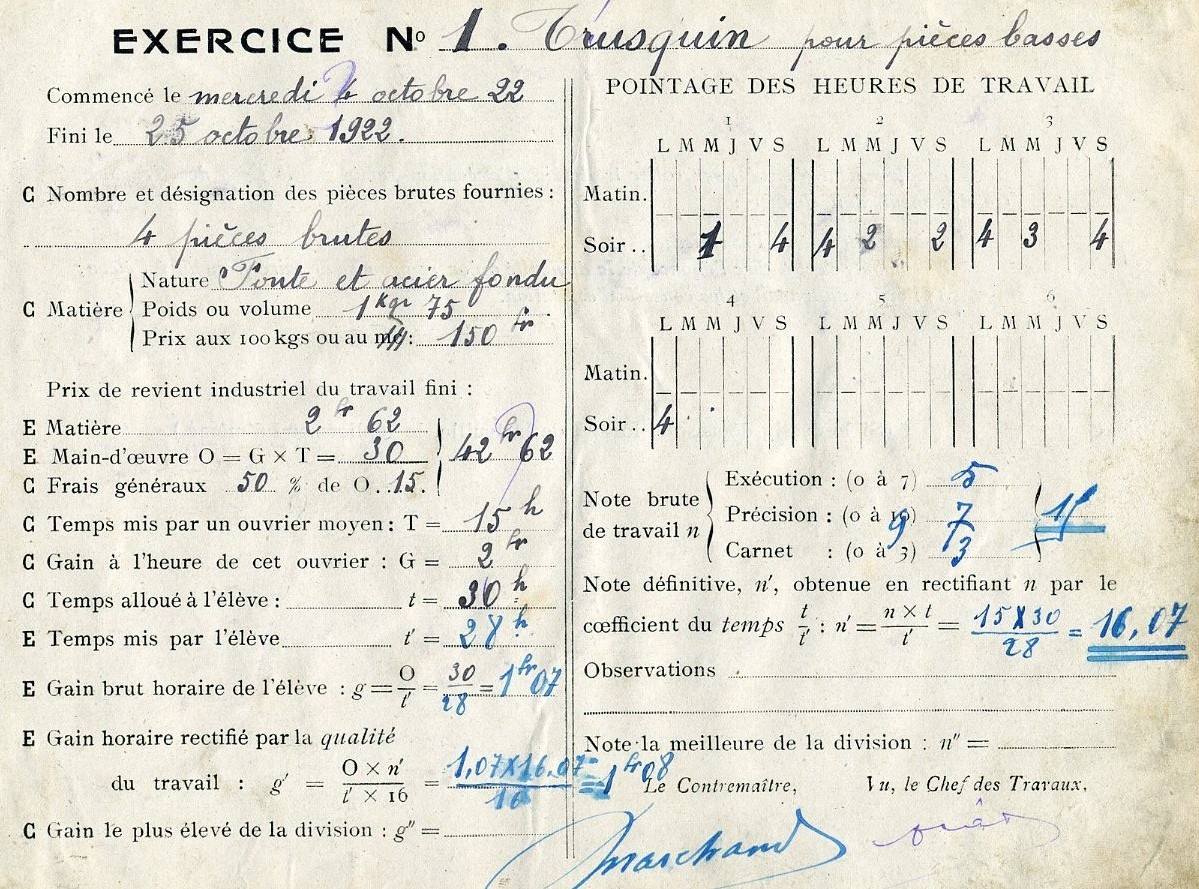 EXERCICE Nº 1. Trusquin pour pièces basses
Commencé le mercredi 4 octobre 22
Fini le 25 octobre 1922.
C Nombre et désignation des pièces brutes fournies :
4 pièces brutes
C Matière
Nature Fonte et acier fondu
Poids ou volume 1 kgr 75
Prix aux 100 kgs ou au : 150 fr
Prix de revient industriel du travail fini :
E Matière 2 fr 62
E Main-d'œuvre O = G × T = 30
42 fr 62
C Frais généraux 50 % de O. 15.
C Temps mis par un ouvrier moyen : T = 15 h
C Gain à l'heure de cet ouvrier : G = 2 fr
C Temps alloué à l'élève : t = 30 h
E Temps mis par l'élève t' = 28 h.
E Gain brut horaire de l'élève : g = O/t' = 30/28 = 1 fr 07
E Gain horaire rectifié par la qualité
du travail : g' = O × n' / t' × 16 = 1,07 X 16.07 / 16 = 1 fr 08
C Gain le plus élevé de la division : g" =
POINTAGE DES HEURES DE TRAVAIL
1 2 3
L M M J V S L M M J V S L M M J V S
Matin.
Soir . . 1 4 4 2 2 4 3 4
4 5 6
L M M J V S L M M J V S L M M J V S
Matin.
Soir . . 4
Note brute de travail n
Exécution : (0 à 7) 5
Précision : (0 à 10) 9 7
Carnet : (0 à 3) 3
15
Note définitive, n', obtenue en rectifiant n par le
cœfficient du temps t/t' : n' = n × t / t' = 15 X 30 / 28 = 16,07
Observations
Note la meilleure de la division : n" =
Le Contremaître, Vu, le Chef des Travaux,
Marchand